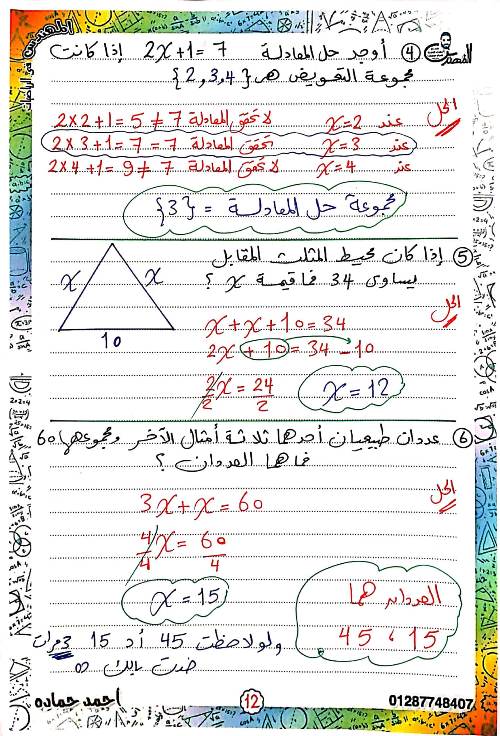 ④ أوجد حل المعادلة 2x+1=7 إذا كانت
مجموعة التعويض هى {2,3,4}
الحل
عند x=2 لا تحقق المعادلة 2×2+1=5≠7
عند x=3 تحقق المعادلة 2×3+1=7=7
عند x=4 لا تحقق المعادلة 2×4+1=9≠7
مجموعة حل المعادلة = {3}
⑤ إذا كان محيط المثلث المقابل
يساوى 34 فما قيمة x ؟
x x
10
الحل
x+x+10=34
2x+10=34-10
2x/2=24/2
x=12
⑥ عددان طبيعيان أحدهما ثلاثة أمثال الآخر ومجموعهما 60
فما هما العددان ؟
الحل
3x+x=60
4x/4=60/4
x=15
العددان هما
45 ، 15
ولو لاحظت 45 أد 15 3 مرات
خدت بالك
احمد حماده
12
01287748407